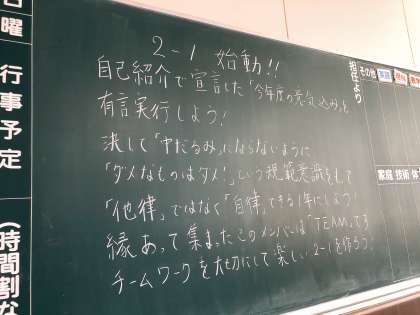 曜
行事予定
(時間割な
2-1 始動!!
自己紹介で宣言した「今年度の意気込み」を
有言実行しよう!
決して「中だるみ」にならないように
「ダメなものはダメ!」いう規範意識をもって
「他律」ではなく「自律」できる1年にしよう!
縁あって集まったこのメンバーは「TEAM」です
チームワークを大切にして楽しい2-1を作ろう!
担任より
その他
英語
理科
数学
家庭
技術
体